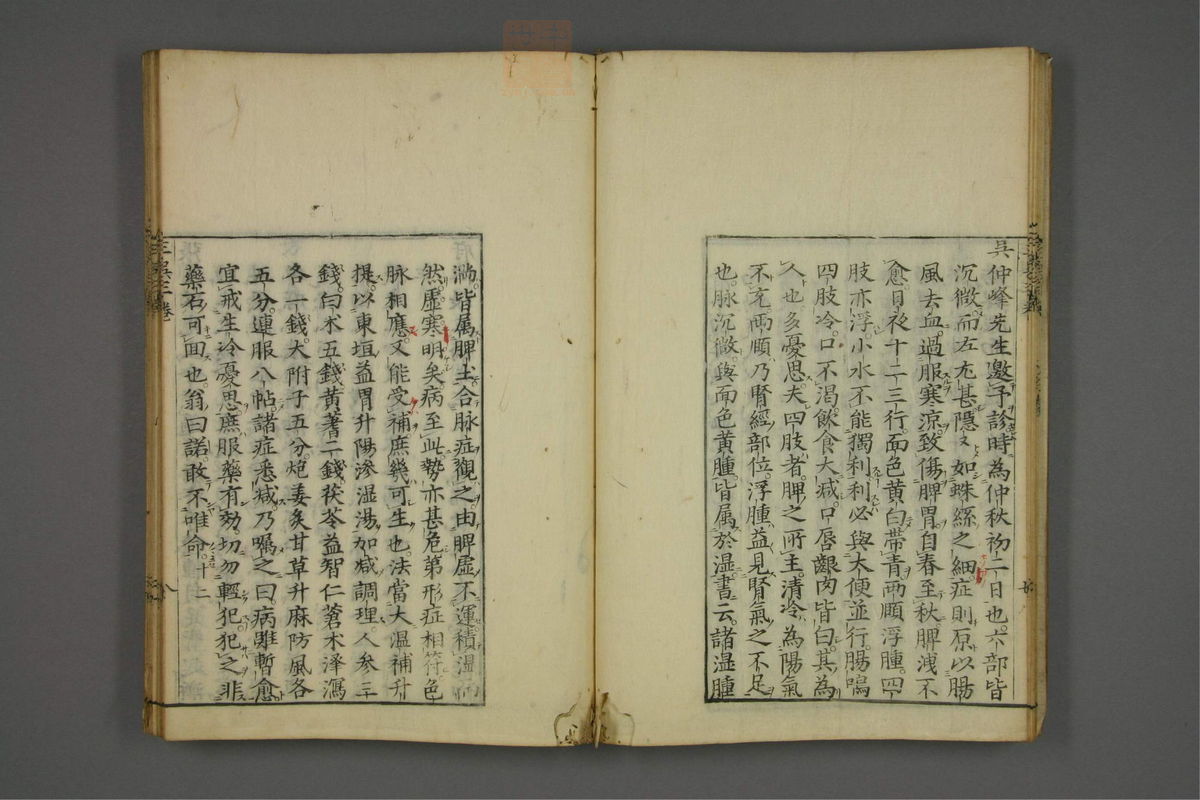 吳仲峰先生邀予診時為仲秋初二日也六部皆
沉微而左尤甚隱〻如蛛絲之細症則原以腸
風去血過服寒涼致傷脾胃自春至秋脾洩不
愈日夜十二三行面色黃白帶青兩頤浮腫四
肢亦浮小水不能獨利利必與大便並行腸鳴
四肢冷口不渴飲食大減口唇齦肉皆白其為
人也多憂思夫四肢者脾之所主清冷為陽氣
不充兩頤乃腎經部位浮腫益見腎氣之不足
也脉沉微與面色黃腫皆属於湿書云諸湿腫
滿皆属脾土合脉症觀之由脾虛不運積湿而
然虛寒明矣病至此勢亦甚危第形症相符色
脉相應又能受補庶幾可生也法當大温補升
提以東垣益胃升陽滲湿湯加減調理人參三
錢白术五錢黃耆二錢茯苓益智仁蒼术泽瀉
各一錢大附子五分炮姜炙甘草升麻防風各
五分連服八帖諸症悉減乃囑之曰病雖暫愈
宜戒生冷憂思庶服藥有効切勿輕犯犯之非
藥石可面也翁曰諾敢不唯命十二
三吳三卷